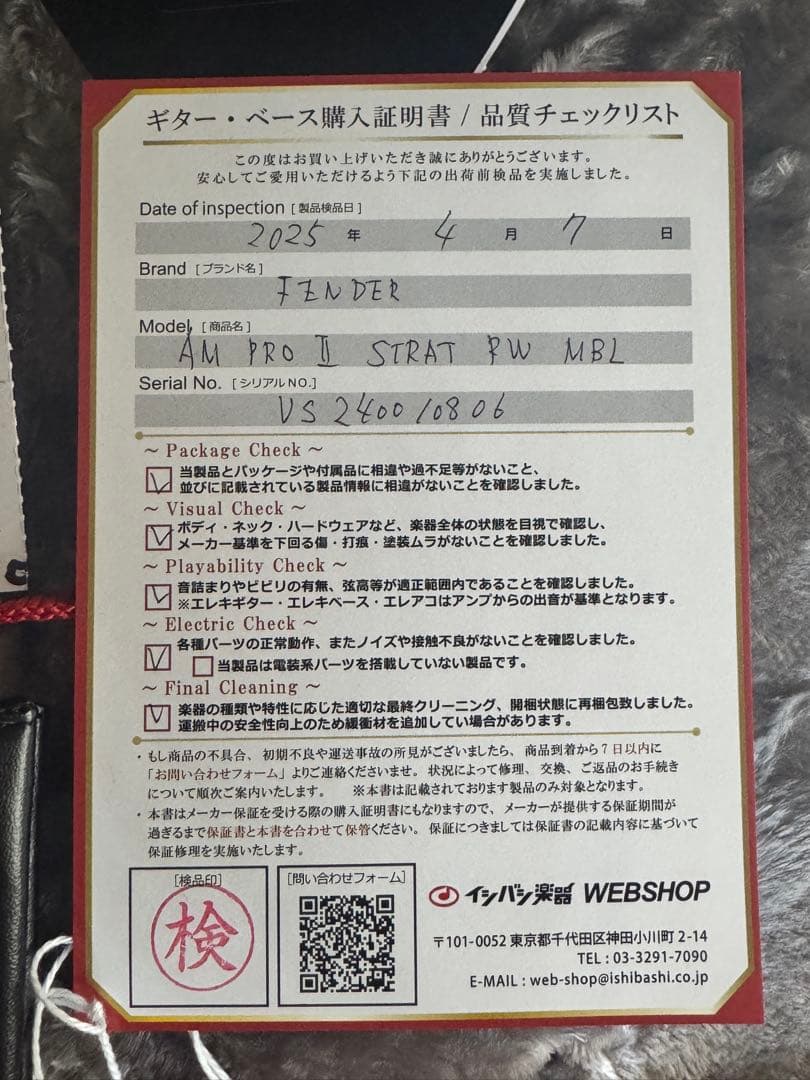 ギター・ベース購入証明書 / 品質チェックリスト
この度はお買い上げいただき誠にありがとうございます。
安心してご愛用いただけるよう下記の出荷前検品を実施しました。
Date of inspection [ 製品検品日 ]
2025 年 4 月 7 日
Brand [ ブランド名 ]
FENDER
Model [ 商品名 ]
AM PRO II STRAT RW MBL
Serial No. [ シリアルNO.]
VS24001080​6
～ Package Check ～
当製品とパッケージや付属品に相違や過不足等がないこと、
並びに記載されている製品情報に相違がないことを確認しました。
～ Visual Check ～
ボディ・ネック・ハードウェアなど、楽器全体の状態を目視で確認し、
メーカー基準を下回る傷・打痕・塗装ムラがないことを確認しました。
～ Playability Check ～
音詰まりやビビリの有無、弦高等が適正範囲内であることを確認しました。
※エレキギター・エレキベース・エレアコはアンプからの出音が基準となります。
～ Electric Check ～
各種パーツの正常動作、またノイズや接触不良がないことを確認しました。
当製品は電装系パーツを搭載していない製品です。
～ Final Cleaning ～
楽器の種類や特性に応じた適切な最終クリーニング、開梱状態に再梱包致しました。
運搬中の安全性向上のため緩衝材を追加してい場合があります。
・もし商品の不具合、初期不良や運送事故の所見がございましたら、商品到着から7日以内に
「お問い合わせフォーム」よりご連絡くださいませ。状況によって修理、交換、ご返品のお手続き
について順次ご案内いたします。 ※本書は記載されております製品のみ対象となります。
・本書はメーカー保証を受ける際の購入証明書にもなりますので、メーカーが提供する保証期間が
過ぎるまで保証書と本書を合わせて保管ください。保証につきましては保証書の記載内容に基づいて
保証修理を実施いたします。
[検品印]
検
[問い合わせフォーム]
イシバシ楽器 WEBSHOP
〒101-0052 東京都千代田区神田小川町 2-14
TEL : 03-3291-7090
E-MAIL : web-shop@ishibashi.co.jp